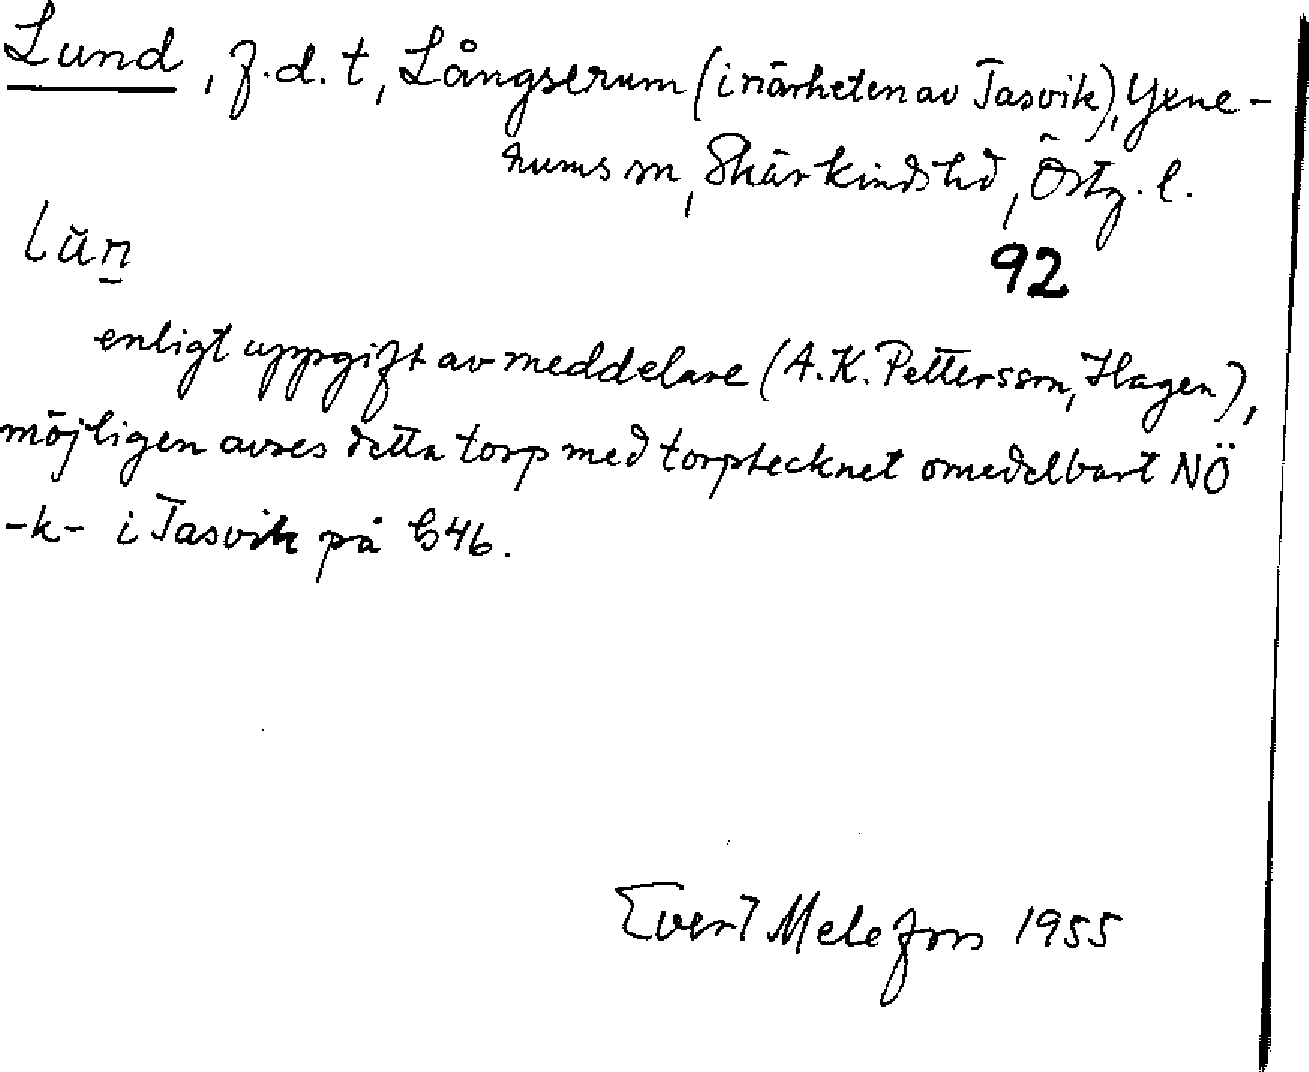 Lund, f.d. t, Långserum (i närheten av Tasvik), Yxne-
rums sn, Skärkinds hd, Östg. l.
lun
92
enligt uppgift av meddelare (A.K. Pettersson, Hagen),
möjligen avses detta torp med torptecknet omedelbart NÖ
-k- i Tasvik på G46.
Evert Melefors 1955